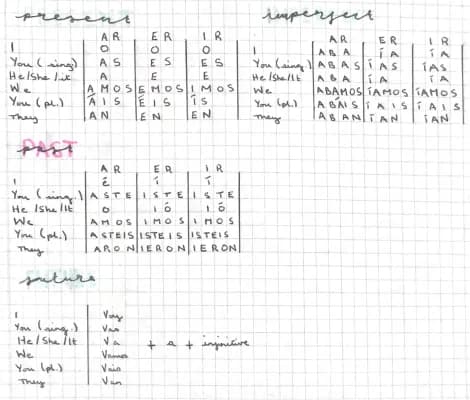 present
AR ER IR
I O O O
You (sing) AS ES ES
He/She/it A E E
We AMOS EMOS IMOS
You (pl.) ÁIS ÉIS ÍS
They AN EN EN
imperfect
AR ER IR
I ABA ÍA ÍA
You (sing) ABAS ÍAS ÍAS
He/She/It ABA ÍA ÍA
We ABAMOS ÍAMOS ÍAMOS
You (pl.) ABAIS ÍAIS ÍAIS
They ABAN ÍAN ÍAN
PAST
past
AR ER IR
I É Í Í
You (sing.) ASTE ISTE ISTE
He/She/It O IÓ IÓ
We AMOS IMOS IMOS
You (pl.) ASTEIS ISTEIS ISTEIS
They ARON IERON IERON
future
I Voy
You (sing.) Vas
He/She/It Va + a + infinitive
We Vamos
You (pl) Vais
They Van